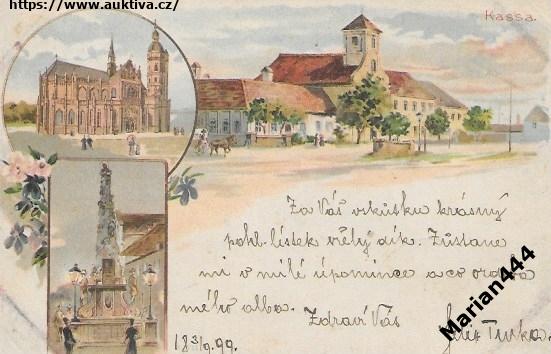 https://www.auktiva.cz/
Kassa.
Za Váš vkusku krásný
pohl. lístek vřelý dík. Zůstane
mi v milé úpomínce a co
mého alba. Zdraví Vás
18 3/9. 99.
Marian444